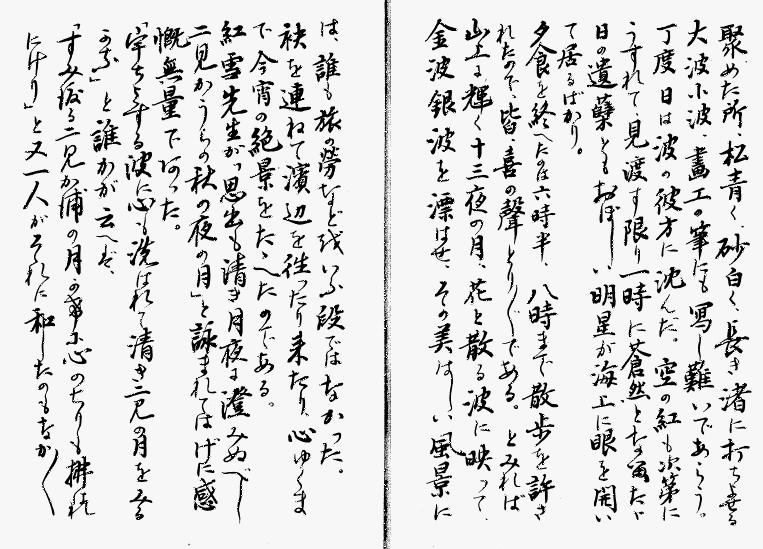 聚めた所、松青く、砂白く、長き渚に打ち寄る
大波小波、畫工の筆にも寫し難いであらう。
丁度日は波の彼方に沈んだ。空の紅も次第に
うすれて、見渡す限り一時に蒼然となつた。
日の遺孽ともおぼしい明星が海上に眼を開い
て居るばかり。
夕食を終へたのは六時半、八時まで散歩を許さ
れたので、皆、喜の聲とり〴〵である。とみれば
山上に輝く十三夜の月、花と散る波に映つて、
金波銀波を漂はせ、その美はしい風景に
は、誰も旅の勞などをいふ段ではなかつた。
袂を連ねて濱辺を往つたり来たり、心ゆくま
で今宵の絶景をたゝへたのである。
紅雪先生がつ思出も清き月夜に澄みぬべし
二見かうらの秋の夜の月」と詠まれてはげに感
慨無量であつた。
「寄する波に心も洗はれて清き二見の月をみる
かな」と誰かが云へば、
「すみ渡る二見か浦の月みれば心のちりも拂はれ
にけり」と又一人がそれに和したのもなか〳〵